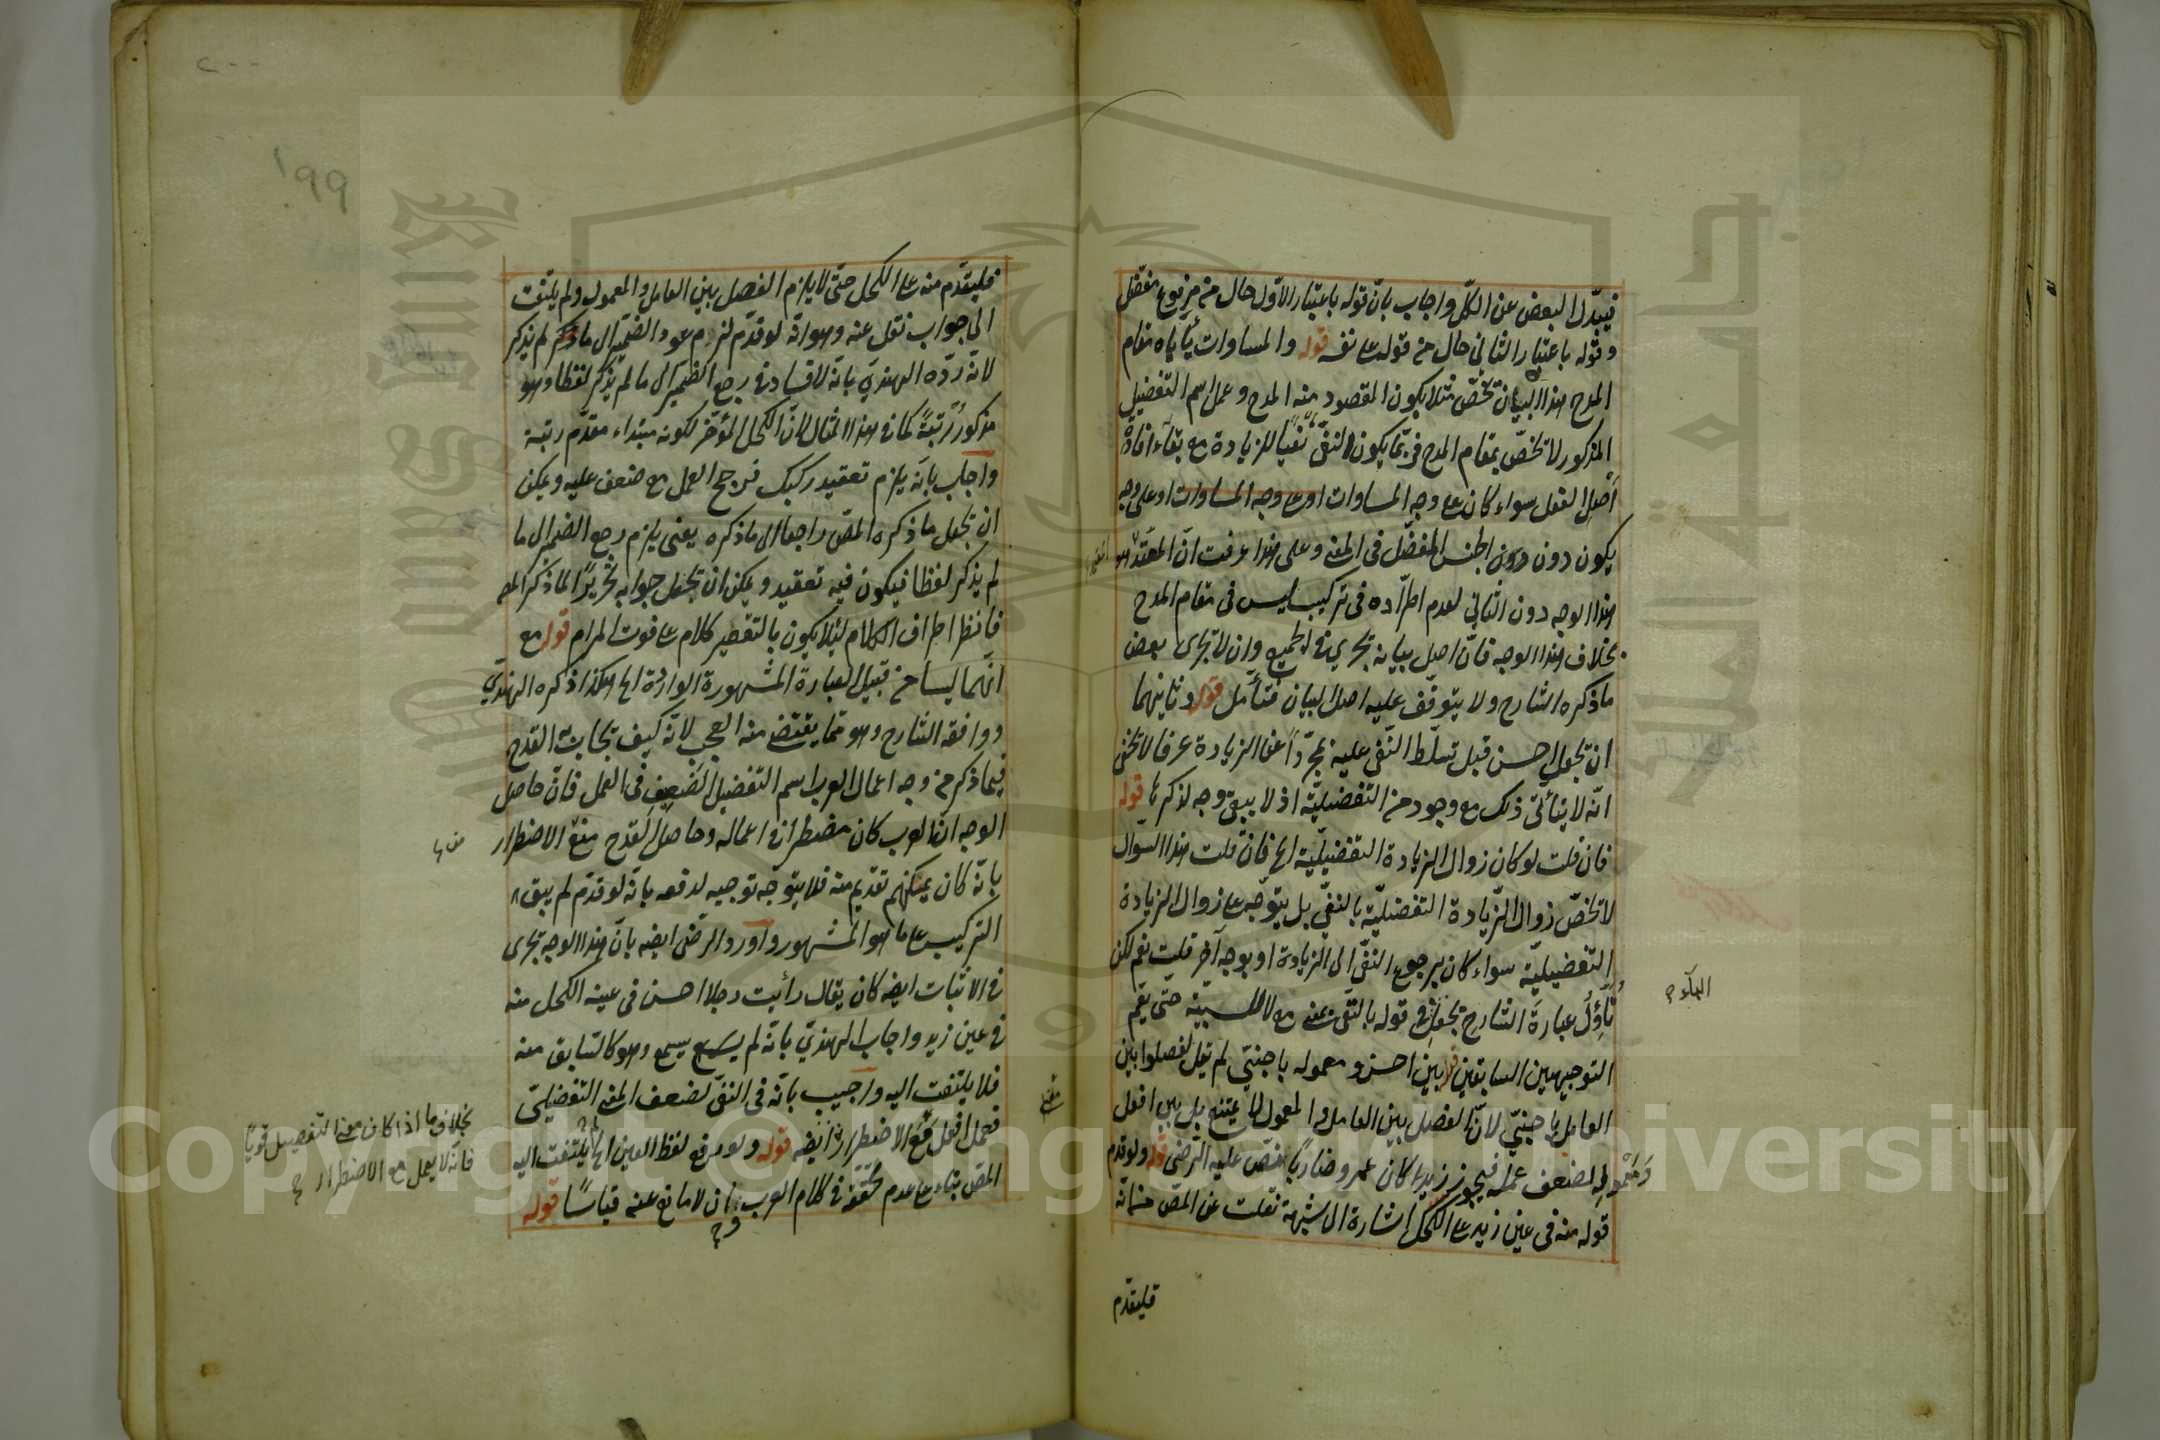 فيبدل البعض عن الكل واجاب بان قوله باعتبار الاول حال من مرفوع مفضل
وقوله باعتبار الثاني حال من قوله على نفسه قوله والمساوات يأباه مقام
المدح هذا البيان تخص مثلا يكون المقصود منه المدح وعمل اسم التفضيل
المذكور لا تخص بمقام المدح فربما يكون النفي نفيا للزيادة مع بقاء افادة
أصل الفعل سواء كان على وجه المساوات او على وجه المساوات او على وجه
يكون دون المفضل في المعنى وعلى هذا عرفت ان المعتد هو
هذا الوجه دون الثاني لعدم اطراده في تركيب ليس في مقام المدح
بخلاف هذا الوجه فان اصل بيانه يجري في الجميع وان لا تجرى بعض
ما ذكره الشارح ولا يتوقف عليه اصل البيان فتأمل قوله وثانيهما
ان تجعل احسن قبل تسلط النفي عليه مجردا عن الزيادة عرفا لا تخفى
انه لا يتأتى ذلك مع وجود من التفضيلية اذ لا يبقى وجه لذكرها قوله
فان قلت لو كان زوال الزيادة التفضيلية الخ فان قلت هذا السوال
لا تخص زوال الزيادة التفضيلية بالنفي بل يتوجه على زوال الزيادة
التفضيلية سواء كان برجوع النفي الى الزيادة او بوجه آخر قلت نعم لكن
تأول عبارة الشارح بجعل في قوله بالنفي بمعنى مع لا للسببية حتى يعم
التوجيهين السابقين قوله بين احسن ومعموله باجنبي لم يقل لفصلوا بين
العامل باجنبي لان الفصل بين العامل والمعمول لا يمتنع بل بين افعل
ومعموله لضعف عمله فيجوز زيدا كان عمرو ضاربا نص عليه الرضي قوله ولو قدم
قوله منه في عين زيد على الكحل اشارة الى شبهة نقلت عن المص من انه
فليقدم
فليقدم منه على الكحل حتى لا يلزم الفصل بين العامل والمعمول ولم يلتفت
الى جواب نقل عنه وهو انه لو قدم لزم عود الضمير الى ما ذكر لم يذكر
لانه رده الهندي بانه لا فساد في رجع الضمير الى ما لم يذكر لفظا وهو
مذكور رتبة كما في هذا المثال لان الكحل المؤخر لكونه مبتداء مقدم رتبة
واجاب بانه يلزم تعقيد ركيك فرجح العمل مع ضعف عليه ويمكن
ان تجعل ما ذكره المص راجعا الى ما ذكره يعنى يلزم رجع الضمير الى ما
لم يذكر لفظا فيكون فيه تعقيد ويمكن ان تجعل جوابه تحريرا لما ذكر المص
فانظر اطراف الكلام لئلا يكون بالتقصير كلام على فوت المرام قوله مع
انهما ليسا من قبيل العبارة المشهورة الواردة الخ هكذا ذكره الهندي
ووافقه الشارح وهو مما يقتضى منه العجب لانه كيف تجاب القدح
فيما ذكر من وجه اعمال العرب اسم التفضيل الضعيف في العمل فان حاصل
الوجه ان العرب كان مضطرا في اعماله وحاصل القدح منع الاضطرار
بانه كان يمكنهم تقديم منه فلا يتوجه توجيه لدفعه بانه لو قدم لم يبق
التركيب على ما هو المشهور واورد الرضى ايضه بان هذا الوجه تجرى
في الاثبات ايضه كان يقال رأيت رجلا احسن في عينه الكحل منه
في عين زيد واجاب الهندي بانه لم يسمع وهو كالسابق منه
فلا يلتفت اليه واجيب بانه في النفي لضعف المعنى التفضيلي
فعمل افعل مع الاضطرار ايضه قوله ولو رفع لفظ العين الخ لم يلتفت اليه
المص بناء على عدم تحققه في كلام العرب وان لا مانع عنه قياسا قوله
بخلاف ما اذا كان معنى التفضيل قويا
فانه لا يعمل مع الاضطرار
١٩٩
٢٠٠
Copyright © King Saud University
King Saud University